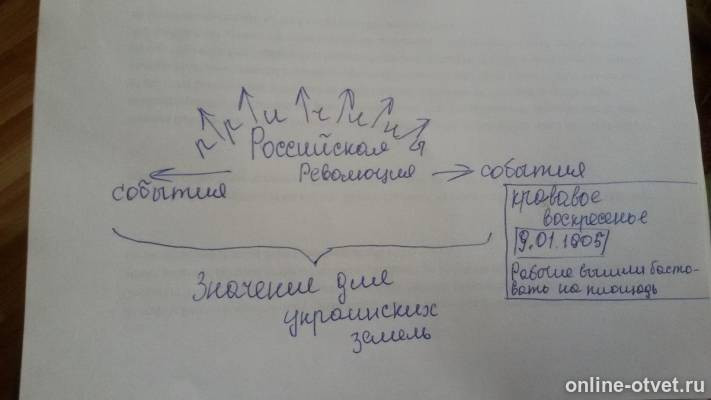 причины
Российская
Революция
события
события
кровавое
воскресенье
9.01.1905
Рабочие вышли басто-
вать на площадь
Значение для
украинских
земель
online-otvet.ru